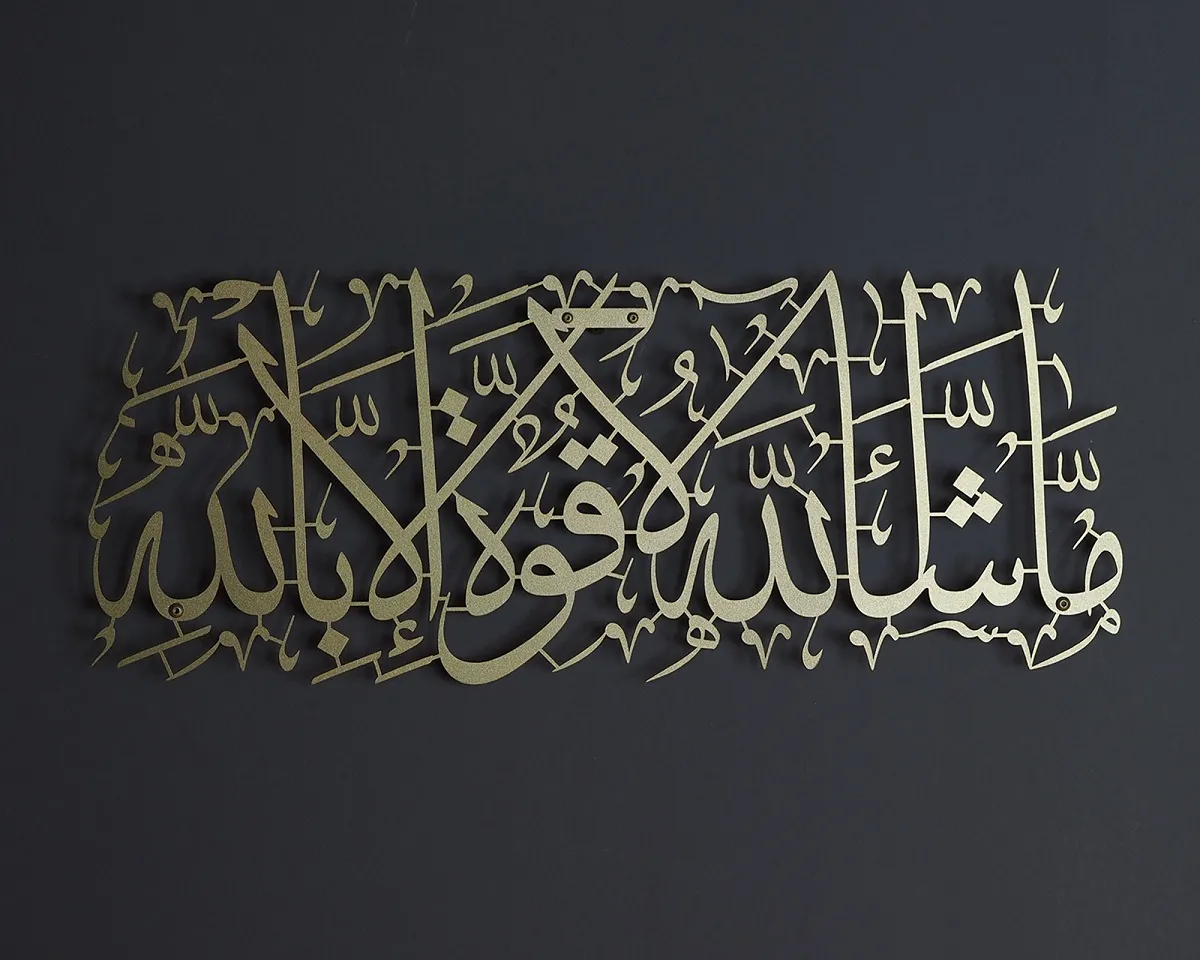 مَّاشَآءَ ٱللَّهُ لَا قُوَّةَ إِلَّا بِٱللَّهِ